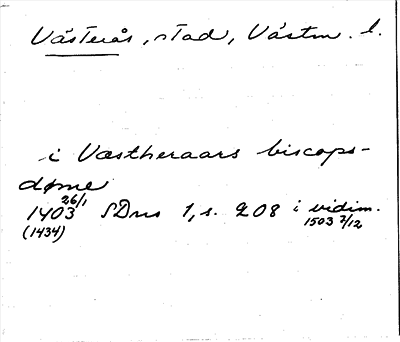 Västerås, stad, Västm. l.
i Væstheraars biscops-
døme
1403 26/1 SDns 1, s. 208 i vidim.
(1434) 1503 2/12